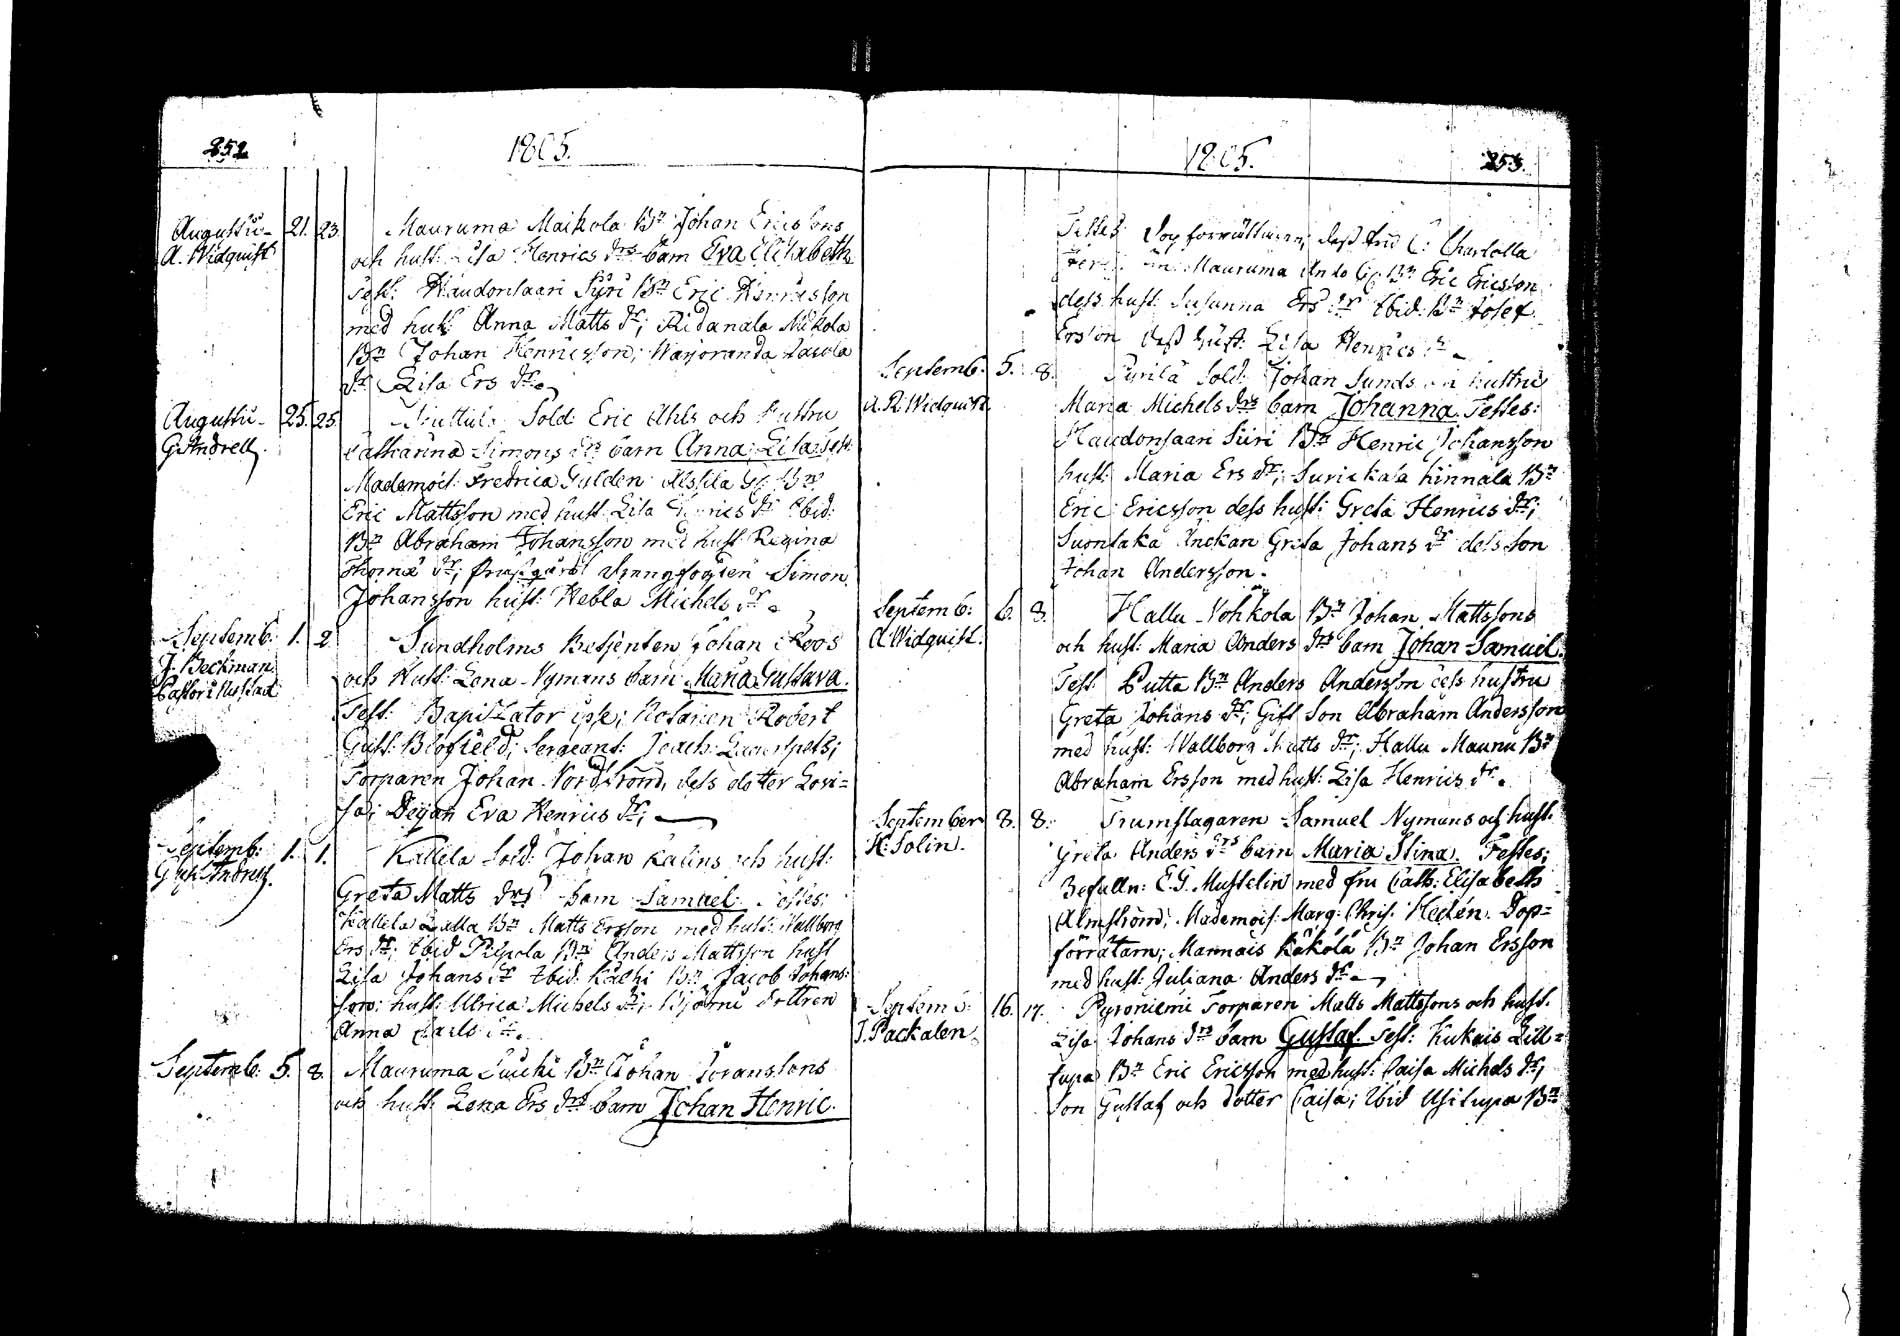 252
1805.
Augusti
A. Widquist
21. 23.
Mauruma Maikola Bn Johan Ericssons
och hust: Lisa Henrics drs barn Eva Elisabeth
Test: Haudonsaari Syri Bn Eric Henricsson
med hust: Anna Matts dr; Ridanala Mikola
Bn Johan Henricsson; Warjoranda Jacola
dr Lisa Ers dr.
Augusti
G. Andrell
25. 25.
Sold: Eric Ahls och hustru
Catharina Simons drs barn Anna Lisa Test:
Mademois: Fredrica Gulden
Eric Mattsson med hust: Lisa Henrics dr Ibid:
Bn Abraham Johansson med hust: Regina
Thoma dr; Simon
Johansson hust: Hebla Michels dr.
Septemb: 1. 2
J. Beckman
Pastor i
Sundholms Betjenten Johan Roos
och Hust: Lena Nymans barn Maria Gustava.
Test: Baptizator ipse; Notarien Robert
Gust: Blofield; Sergeant: Joach:
Torparen Johan Nordström, dess dotter Lovi=
sa; Deyan Eva Henrics dr;
Septemb: 1. 1.
Gust. Andrell.
Kallela Sold: Johan Kalins och hust:
Greta Matts drs barn Samuel. Testes:
Kallela Lalla Bn Matts Ersson med hust: Wallborg
Ers dr; Ibid Pispola Bn Anders Mattsson hust
Lisa Johans dr Ibid: Kälhi Bn Jacob Johans=
son: hust: Ulrica Michels dr; Björni dottren
Anna Carls dr.
Septemb: 5. 8.
Mauruma Bn Johan Joranssons
och hust: Lena Ers drs barn Johan Henric.
1805.
253.
Testes: Dop förrättaren; dess fru C: Charlotta
Mauruma Bn Eric Ericsson
dess hust: Susanna Ers dr Ibid: Bn Josef
Ersson dess hust: Lisa Henrics dr
Septemb: 5. 8.
A. R. Widquist.
Purila Sold: Johan Sunds och hustru
Maria Michels drs barn Johanna. Testes:
Haudonsaari Siiri Bn Henric Johansson
hust: Maria Ers dr; Surickala Kinnala Bn
Eric Ericsson dess hust: Greta Henrics dr;
Suontaka Änckan Greta Johans dr dess son
Johan Andersson.
Septemb: 6. 8.
A. Widquist.
Hallu Nohkola Bn Johan Mattssons
och hust: Maria Anders drs barn Johan Samuel.
Test: Putta Bn Anders Andersson dess hustru
Greta Johans dr; Gift Son Abraham Andersson
med hust: Wallborg Matts dr; Hallu Maunu Bn
Abraham Ersson med hust: Lisa Henrics dr.
September 8. 8.
H. Solin.
Trumslagaren Samuel Nymans och hust:
Greta Anders drs barn Maria Stina. Testes;
Befalln: E. G. Musselin med fru Cath: Elisabeth
Almström; Mademois: Marg: Chris: Hedén. Dop=
förrätarn; Mannais Käkölä Bn Johan Ersson
med hust: Juliana Anders dr
Septemb: 16. 17.
J. Packalen.
Pyroniemi Torparen Matts Mattssons och hust:
Lisa Johans drs barn Gustaf. Test: Kukais Lill=
tupa Bn Eric Ericsson med hust: Caisa Michels dr;
son Gustaf och dotter Caisa; Ibid Usitupa Bn